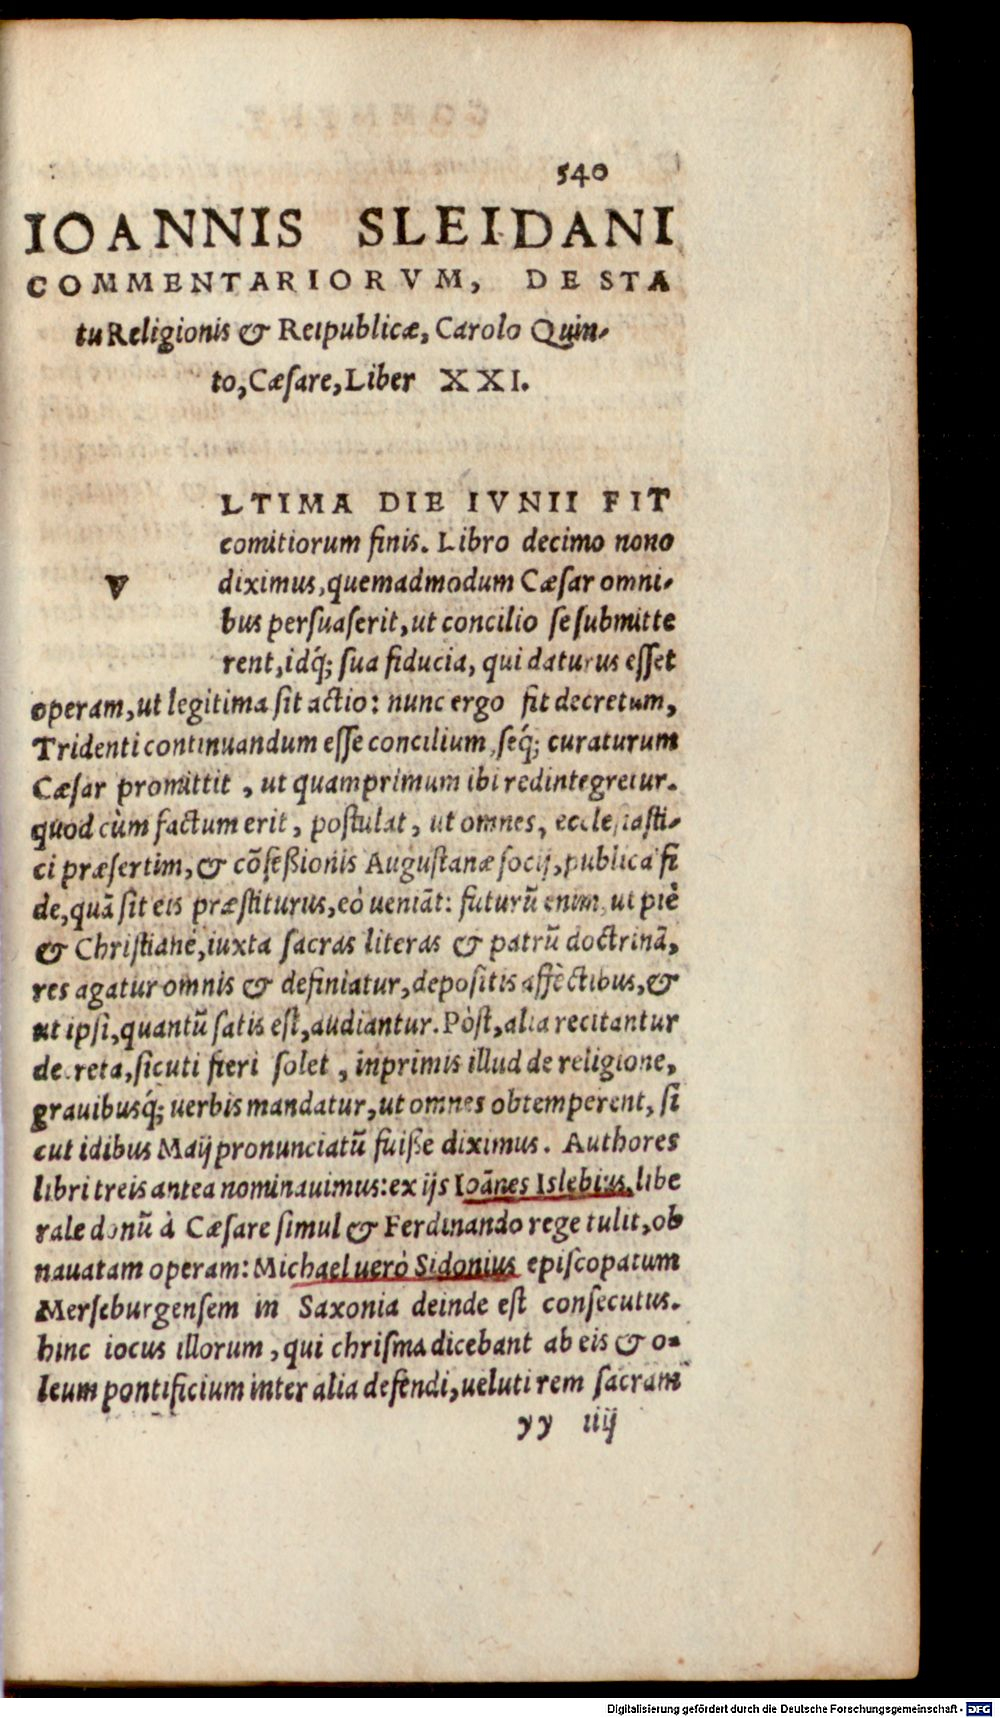 540
IOANNIS SLEIDANI
COMMENTARIORVM, DE STA
tu Religionis & Reipublicæ, Carolo Quin-
to, Cæsare, Liber XXI.
LTIMA DIE IVNII FIT
comitiorum finis. Libro decimo nono
V diximus, quemadmodum Cæsar omni-
bus persuaserit, ut concilio se submitte
rent, idq́; sua fiducia, qui daturus esset
operam, ut legitima sit actio: nunc ergo fit decretum,
Tridenti continuandum esse concilium, seq́; curaturum
Cæsar promittit, ut quamprimum ibi redintegretur.
quod cùm factum erit, postulat, ut omnes, ecclesiasti-
ci præsertim, & cõfeßionis Augustanæ socij, publica fi
de, quã sit eis præstiturus, eò ueniãt: futurũ enim, ut piè
& Christianè, iuxta sacras literas & patrũ doctrinã,
res agatur omnis & definiatur, depositis affectibus, &
ut ipsi, quantũ satis est, audiantur. Pòst, alia recitantur
decreta, sicuti fieri solet, inprimis illud de religione,
grauibusq́; uerbis mandatur, ut omnes obtemperent, si
cut idibus Maij pronunciatũ fuiße diximus. Authores
libri treis antea nominauimus: ex ijs Ioãnes Islebius, libe
rale donũ à Cæsare simul & Ferdinando rege tulit, ob
nauatam operam: Michael uerò Sidonius episcopatum
Merseburgensem in Saxonia deinde est consecutus.
hinc iocus illorum, qui chrisma dicebant ab eis & o-
leum pontificium inter alia defendi, ueluti rem sacram
yy iiij
Digitalisierung gefördert durch die Deutsche Forschungsgemeinschaft - DFG